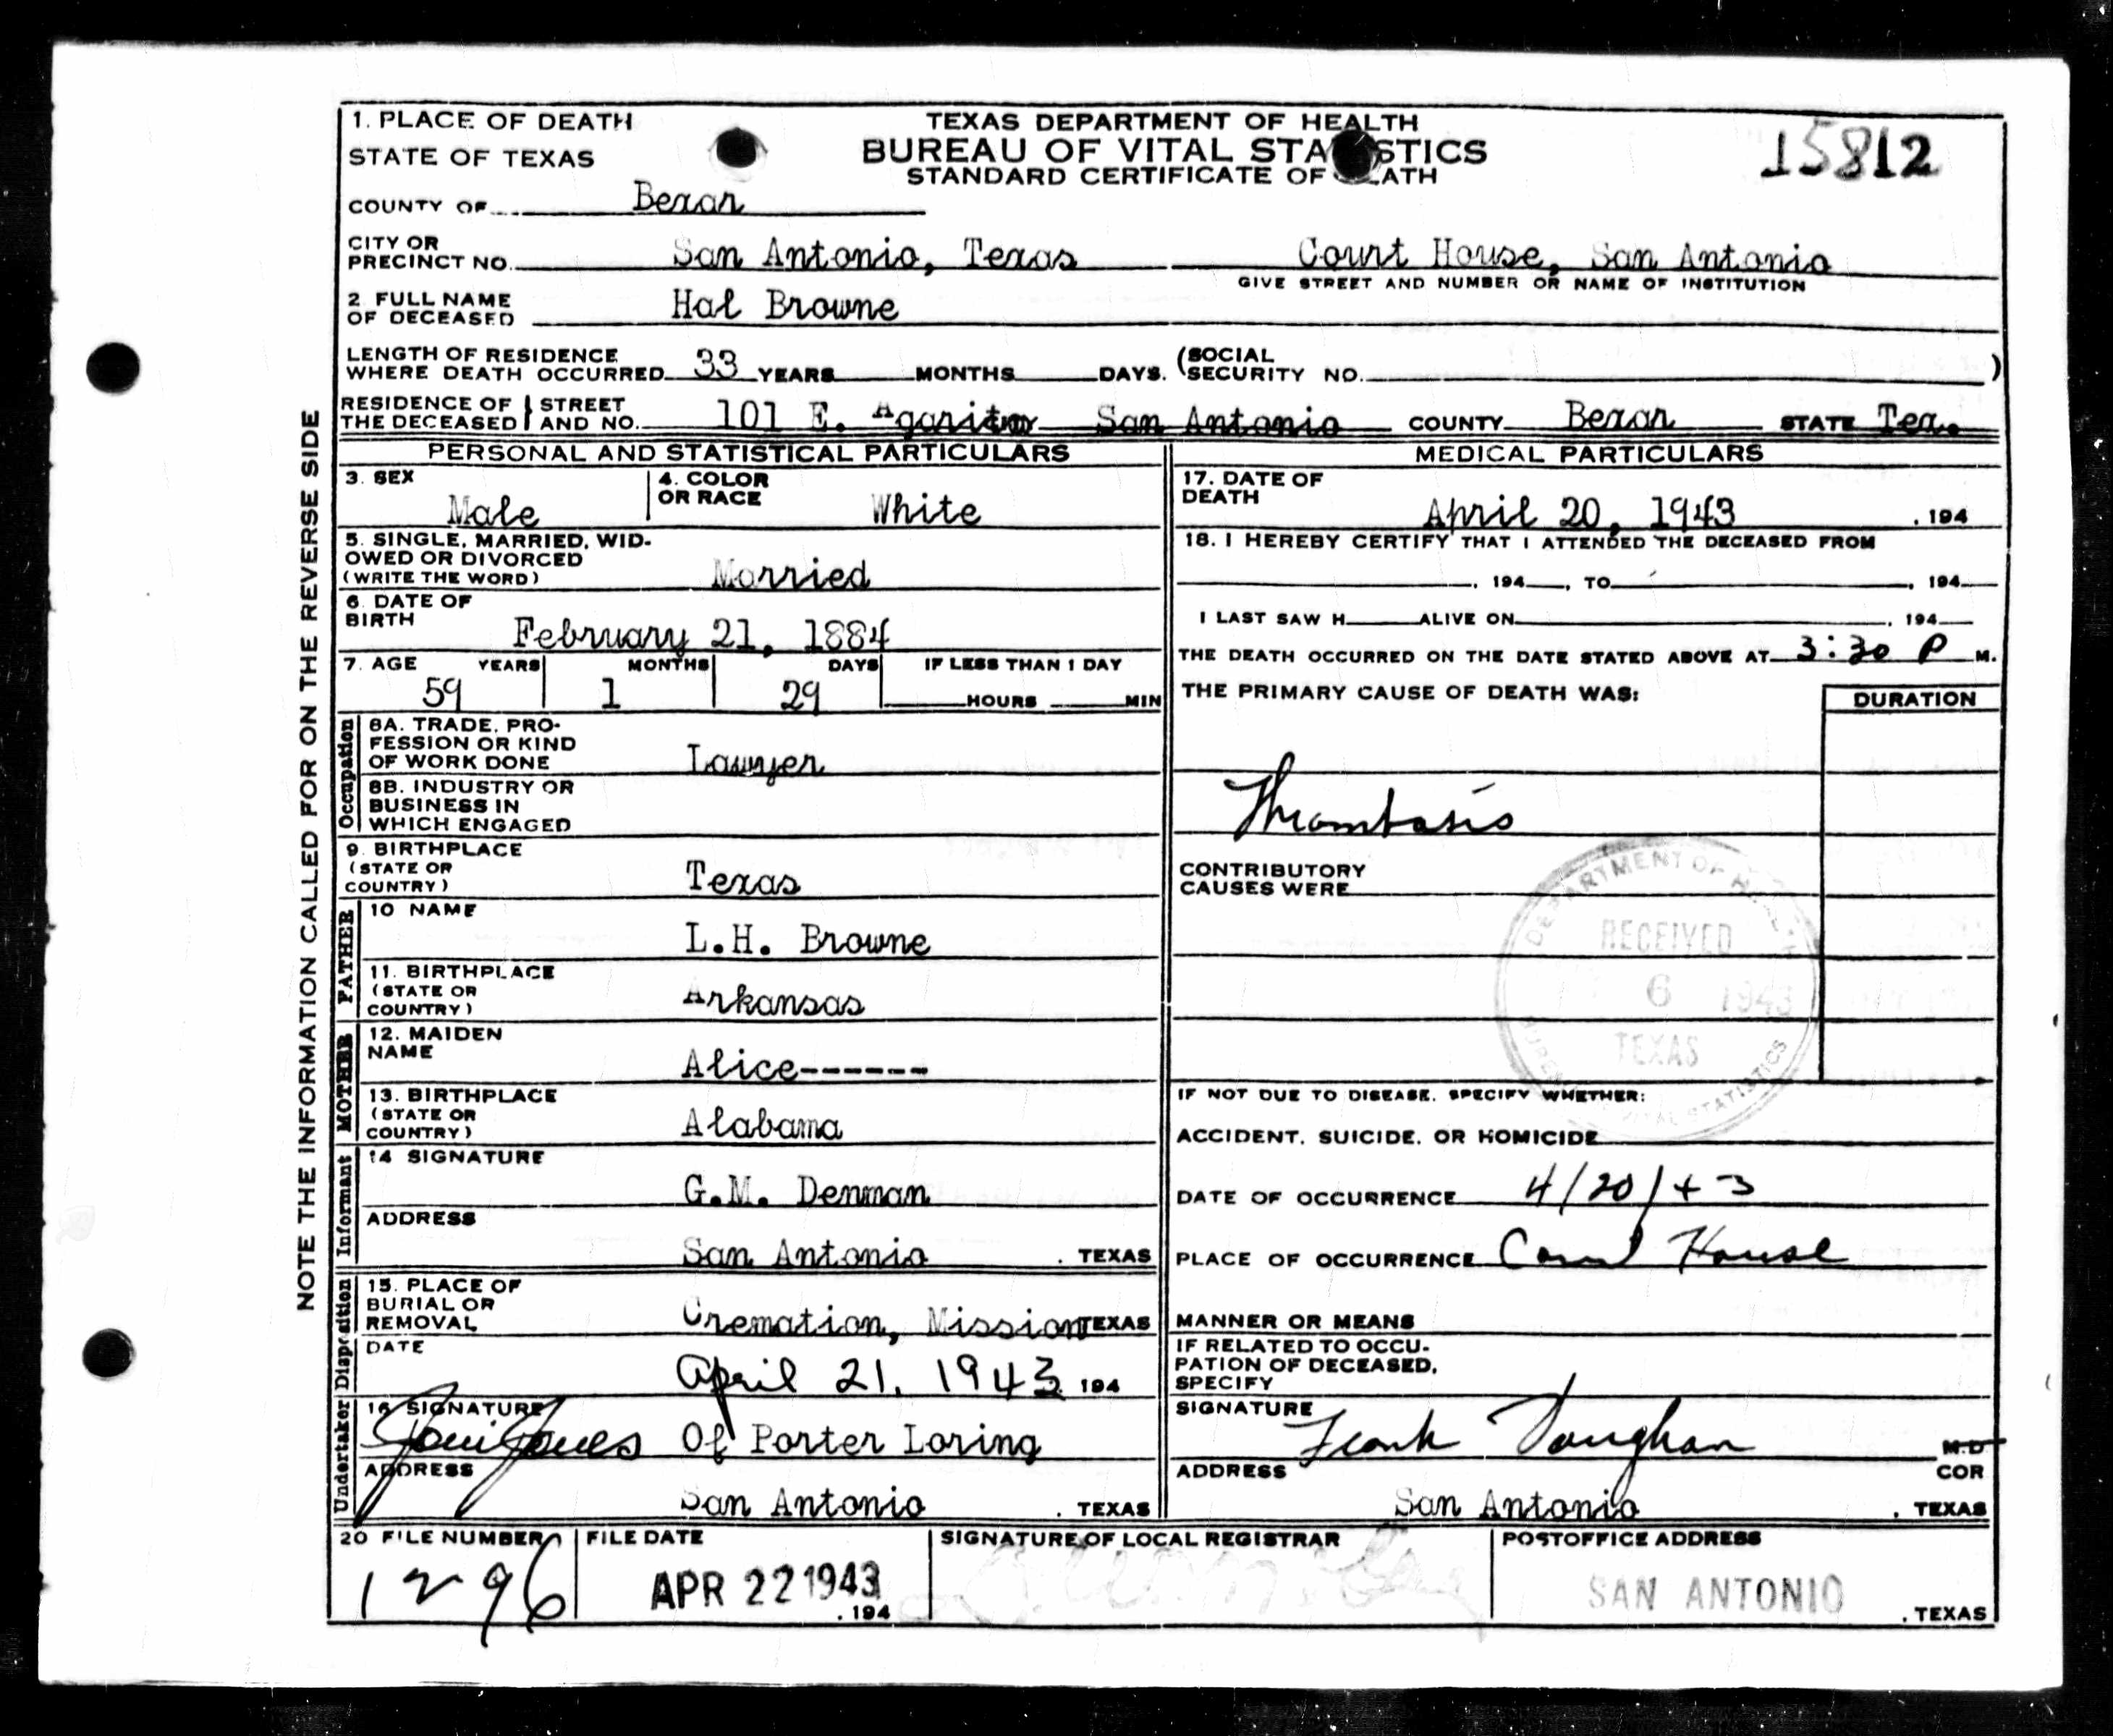 NOTE THE INFORMATION CALLED FOR ON THE REVERSE SIDE
1. PLACE OF DEATH
STATE OF TEXAS
TEXAS DEPARTMENT OF HEALTH
BUREAU OF VITAL STATISTICS
STANDARD CERTIFICATE OF DEATH
15812
COUNTY OF Bexar
CITY OR PRECINCT NO. San Antonio, Texas Court House, San Antonio
GIVE STREET AND NUMBER OR NAME OF INSTITUTION
2 FULL NAME OF DECEASED Hal Browne
LENGTH OF RESIDENCE WHERE DEATH OCCURRED 33 YEARS MONTHS DAYS. (SOCIAL SECURITY NO. )
RESIDENCE OF THE DECEASED STREET AND NO. 101 E. San Antonio COUNTY Bexar STATE Tex.
PERSONAL AND STATISTICAL PARTICULARS
3. SEX Male
4. COLOR OR RACE White
5. SINGLE, MARRIED, WIDOWED OR DIVORCED (WRITE THE WORD) Married
6. DATE OF BIRTH February 21, 1884
7. AGE YEARS MONTHS DAYS IF LESS THAN 1 DAY
59 1 29 HOURS MIN
Occupation
8A. TRADE, PROFESSION OR KIND OF WORK DONE Lawyer
8B. INDUSTRY OR BUSINESS IN WHICH ENGAGED
9. BIRTHPLACE (STATE OR COUNTRY) Texas
FATHER
10 NAME L.H. Browne
11. BIRTHPLACE (STATE OR COUNTRY) Arkansas
MOTHER
12. MAIDEN NAME Alice------
13. BIRTHPLACE (STATE OR COUNTRY) Alabama
Informant
14 SIGNATURE G.M. Denman
ADDRESS San Antonio . TEXAS
Disposition
15. PLACE OF BURIAL OR REMOVAL Cremation, Mission TEXAS
DATE April 21, 1943 194
Undertaker
16 SIGNATURE Jones Of Porter Loring
ADDRESS San Antonio . TEXAS
MEDICAL PARTICULARS
17. DATE OF DEATH April 20, 1943 , 194
18. I HEREBY CERTIFY THAT I ATTENDED THE DECEASED FROM
, 194 , TO , 194
I LAST SAW H ALIVE ON , 194
THE DEATH OCCURRED ON THE DATE STATED ABOVE AT 3:30 P M.
THE PRIMARY CAUSE OF DEATH WAS: DURATION
Thrombosis
CONTRIBUTORY CAUSES WERE
DEPARTMENT OF HEALTH
RECEIVED
6 1943
TEXAS
VITAL STATISTICS
IF NOT DUE TO DISEASE, SPECIFY WHETHER:
ACCIDENT, SUICIDE, OR HOMICIDE
DATE OF OCCURRENCE 4/20/43
PLACE OF OCCURRENCE Court House
MANNER OR MEANS
IF RELATED TO OCCUPATION OF DECEASED, SPECIFY
SIGNATURE Frank Vaughan M.D
COR
ADDRESS San Antonio , TEXAS
20 FILE NUMBER 1296
FILE DATE APR 22 1943 , 194
SIGNATURE OF LOCAL REGISTRAR
POSTOFFICE ADDRESS SAN ANTONIO , TEXAS